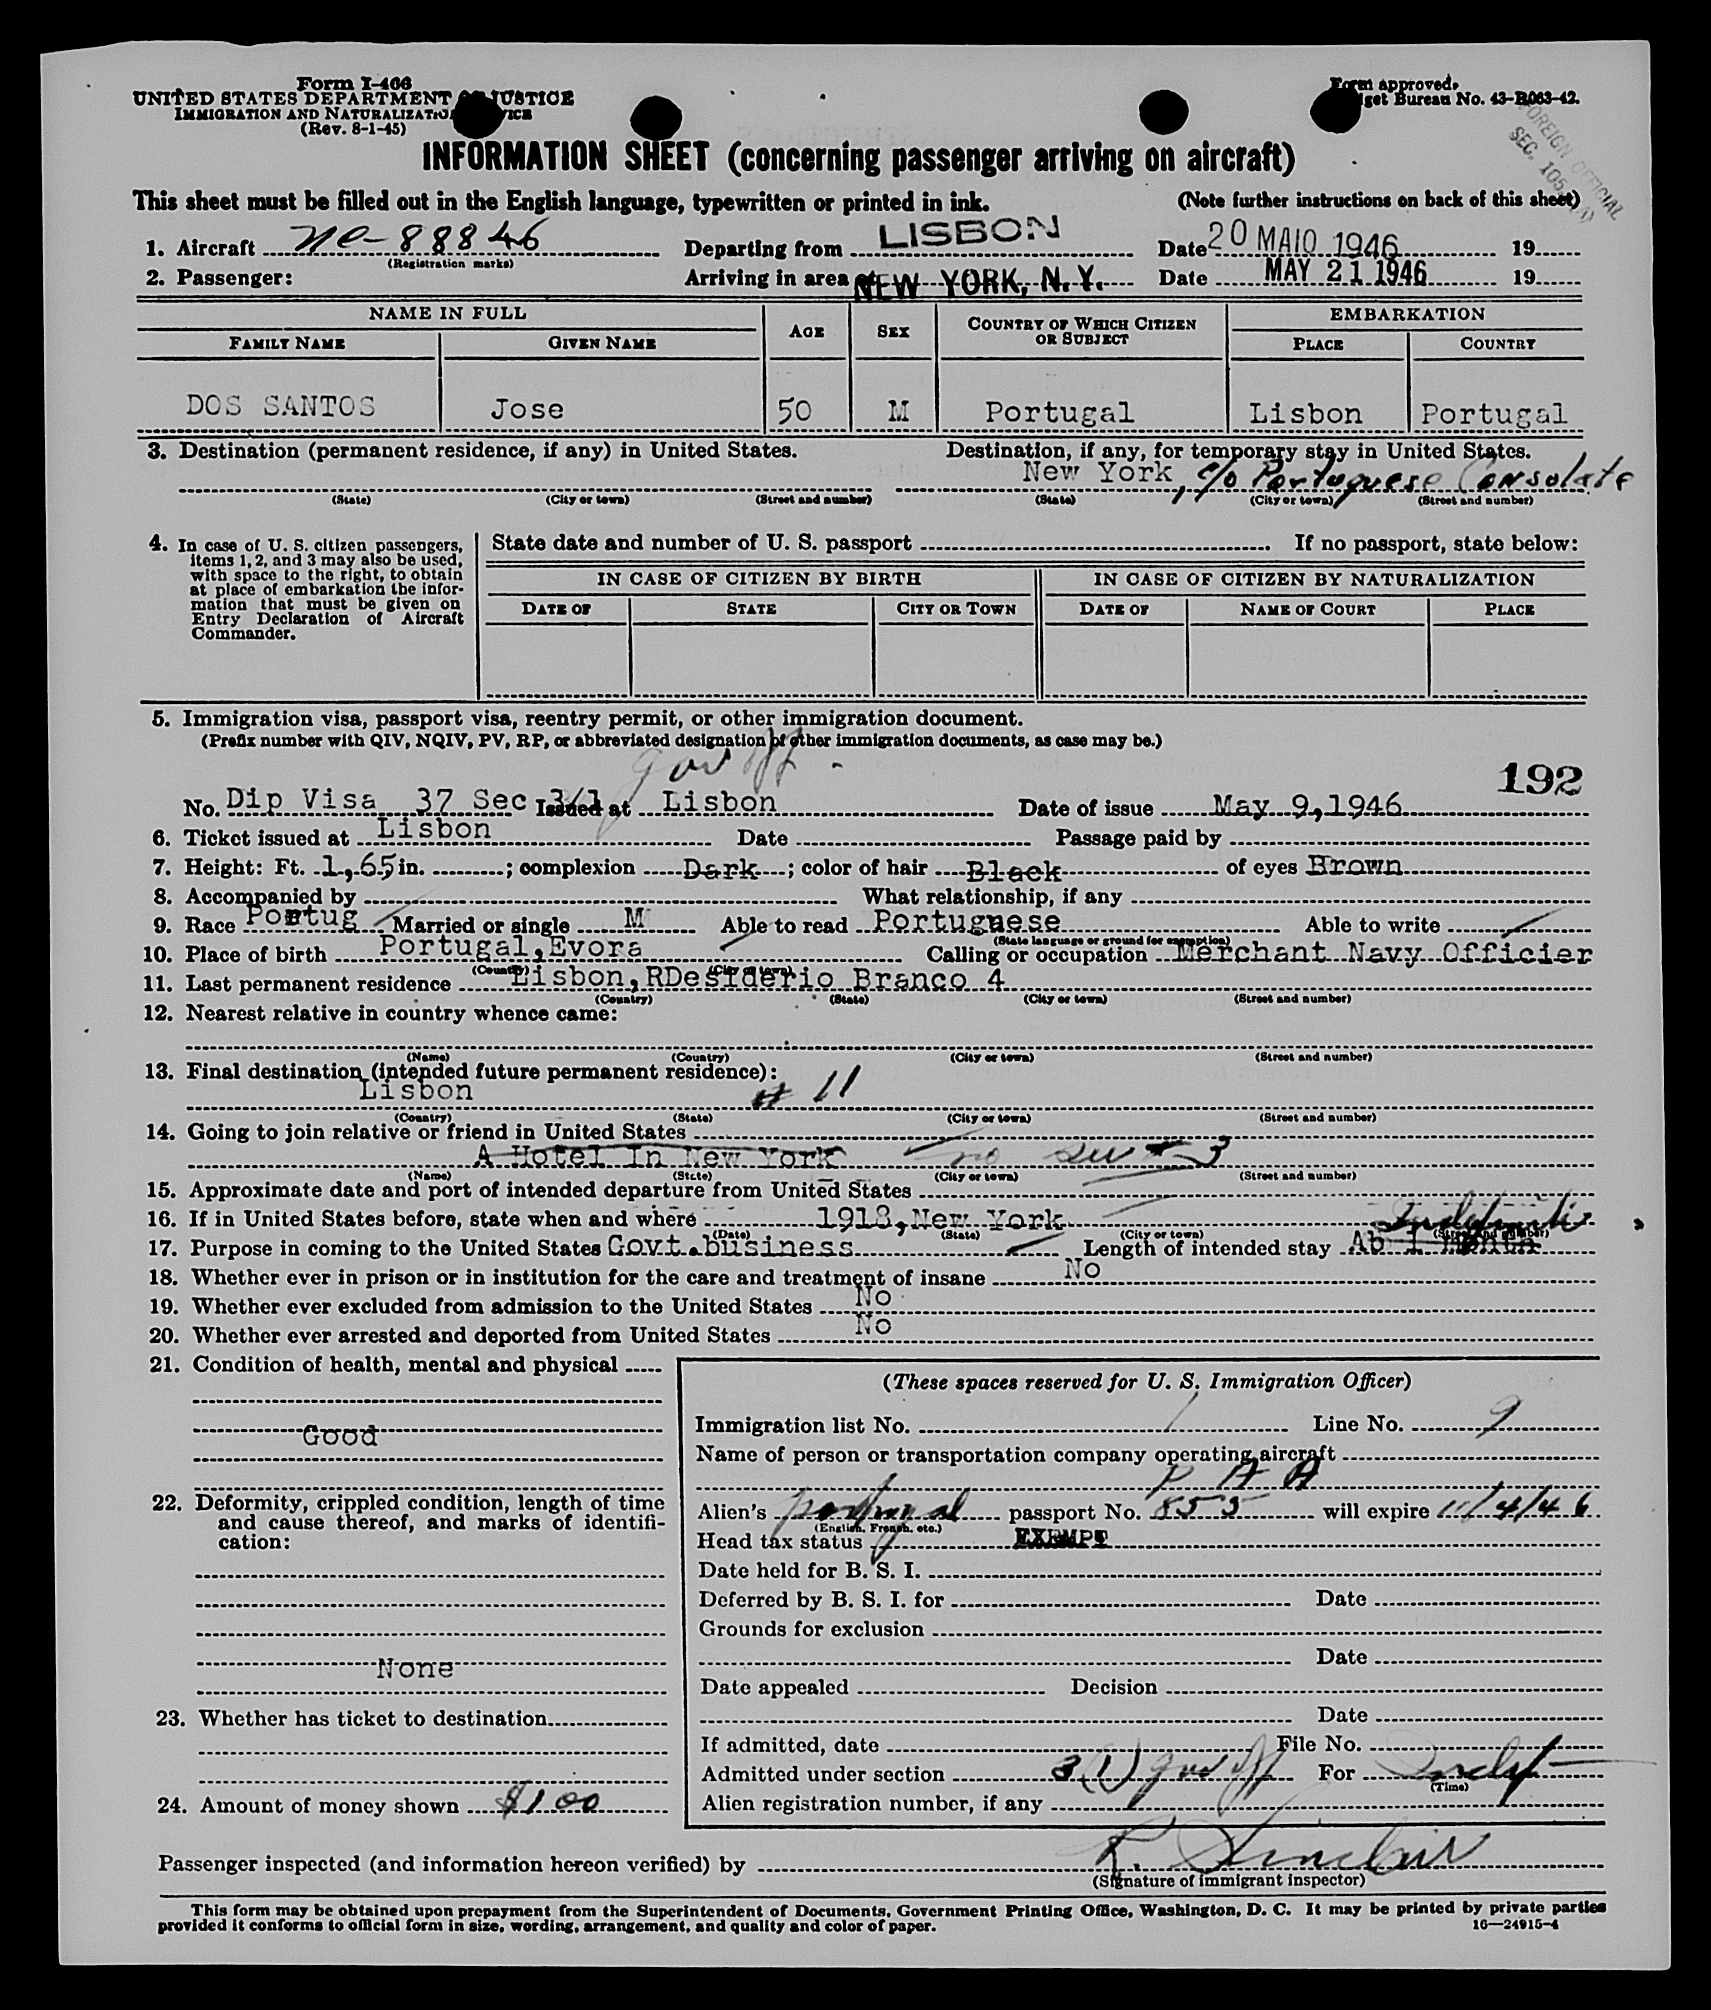 Form I-466
UNITED STATES DEPARTMENT OF JUSTICE
IMMIGRATION AND NATURALIZATION SERVICE
(Rev. 8-1-45)
Form approved.
Budget Bureau No. 43-R063-42.
FOREIGN OFFICIAL
SEC. 105.
INFORMATION SHEET (concerning passenger arriving on aircraft)
This sheet must be filled out in the English language, typewritten or printed in ink. (Note further instructions on back of this sheet)
1. Aircraft NC-88846 Departing from LISBON Date 20 MAIO 1946 19
(Registration marks)
2. Passenger: Arriving in area of NEW YORK, N. Y. Date MAY 21 1946 19
NAME IN FULL AGE SEX COUNTRY OF WHICH CITIZEN OR SUBJECT EMBARKATION
FAMILY NAME GIVEN NAME PLACE COUNTRY
DOS SANTOS Jose 50 M Portugal Lisbon Portugal
3. Destination (permanent residence, if any) in United States. Destination, if any, for temporary stay in United States.
New York, c/o Portuguese Consolate
(State) (City or town) (Street and number) (State) (City or town) (Street and number)
4. In case of U. S. citizen passengers, items 1, 2, and 3 may also be used, with space to the right, to obtain at place of embarkation the information that must be given on Entry Declaration of Aircraft Commander.
State date and number of U. S. passport . If no passport, state below:
IN CASE OF CITIZEN BY BIRTH IN CASE OF CITIZEN BY NATURALIZATION
DATE OF STATE CITY OR TOWN DATE OF NAME OF COURT PLACE
5. Immigration visa, passport visa, reentry permit, or other immigration document.
(Prefix number with QIV, NQIV, PV, RP, or abbreviated designation of other immigration documents, as case may be.)
gov off -
192
No. Dip Visa 37 Sec 3/1 Issued at Lisbon Date of issue May 9,1946
6. Ticket issued at Lisbon Date Passage paid by
7. Height: Ft. 1,65 in. ; complexion Dark ; color of hair Black of eyes Brown
8. Accompanied by What relationship, if any
9. Race Portug Married or single M Able to read Portuguese Able to write
(State language or ground for exemption)
10. Place of birth Portugal,Evora Calling or occupation Merchant Navy Officier
(Country) (City or town)
11. Last permanent residence Lisbon,RDesiderio Branco 4
(Country) (State) (City or town) (Street and number)
12. Nearest relative in country whence came:
(Name) (Country) (City or town) (Street and number)
13. Final destination (intended future permanent residence):
Lisbon # 11
(Country) (State) (City or town) (Street and number)
14. Going to join relative or friend in United States
A Hotel In New York no see # 3
(Name) (State) (City or town) (Street and number)
15. Approximate date and port of intended departure from United States
16. If in United States before, state when and where 1918,New York
(Date) (State) (City or town) (Street and number)
Indefinite
17. Purpose in coming to the United States Govt.business Length of intended stay Ab 1 month
18. Whether ever in prison or in institution for the care and treatment of insane No
19. Whether ever excluded from admission to the United States No
20. Whether ever arrested and deported from United States No
21. Condition of health, mental and physical
Good
22. Deformity, crippled condition, length of time and cause thereof, and marks of identification:
None
23. Whether has ticket to destination
24. Amount of money shown $100
(These spaces reserved for U. S. Immigration Officer)
Immigration list No. 1 Line No. 9
Name of person or transportation company operating aircraft
P A A
Alien's portugal passport No. 855 will expire 11/4/46
(English, French, etc.)
Head tax status EXEMPT
Date held for B. S. I.
Deferred by B. S. I. for Date
Grounds for exclusion
Date
Date appealed Decision
Date
If admitted, date File No.
Admitted under section 3(1) gov off For Indef
(Time)
Alien registration number, if any
Passenger inspected (and information hereon verified) by R. Sinclair
(Signature of immigrant inspector)
This form may be obtained upon prepayment from the Superintendent of Documents, Government Printing Office, Washington, D. C. It may be printed by private parties
provided it conforms to official form in size, wording, arrangement, and quality and color of paper. 16—24915-4